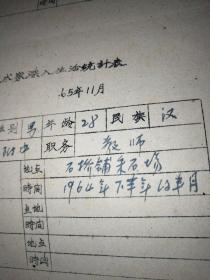 求家深入生活统计表
65年11月
性别 男 年龄 28 民族 汉
附中 职务 教师
地点 石桥铺采石场
时间 1964年下半年12半月
点地
时间
地点
时间